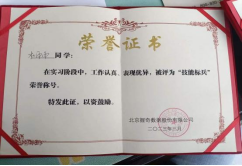 荣誉证书
同学：
在实习阶段中，工作认真、表现优异，被评为“技能标兵”
荣誉称号。
特发此证，以资鼓励。
北京
股份有限公司
二〇二三年六月